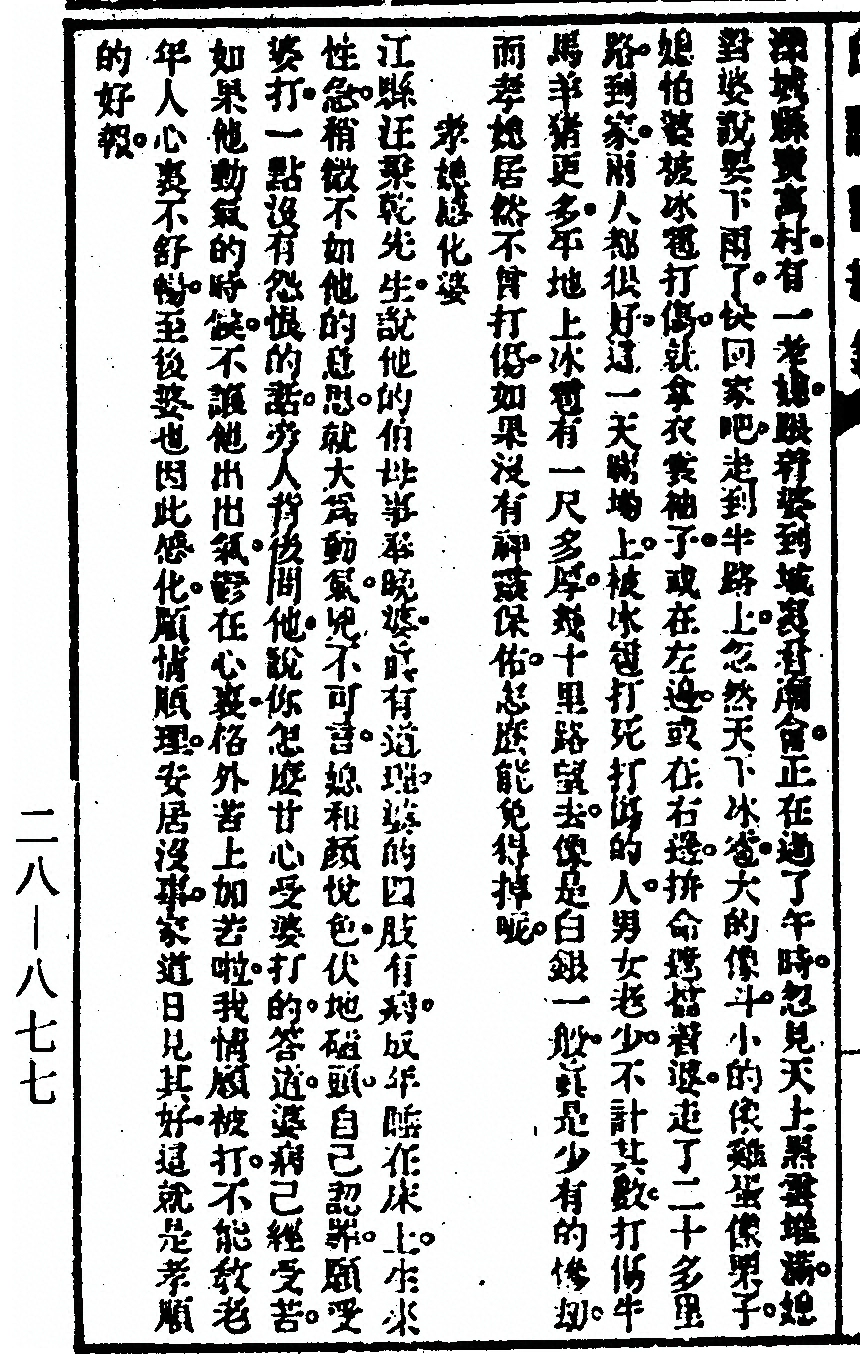 縣寶高村。有一老媳。跟着婆到城裏看廟會。正在過了午時。忽見天上黑雲堆滿。媳
對婆說。要下雨了。快回家吧。走到半路上。忽然天下冰雹。大的像斗。小的像雞蛋像栗子。
媳怕婆被冰雹打傷。就拿衣裳袖子。或在左邊。或在右邊。拚命遮擋着婆。走了二十多里
路。到家。兩人都很好。這一天睹場上。被冰雹打死打傷的人。男女老少。不計其數。打傷牛
馬羊猪更多。平地上冰雹有一尺多厚。幾十里路望去。像是白銀一般。眞是少有的慘劫。
而孝媳居然不曾打傷。如果沒有神靈保佑。怎麽能免得掉呢。
孝媳感化婆
江縣汪秉乾先生。說他的伯母事奉晚婆。眞有道理。婆的四肢有病。成年睡在床上。生來
性急。稍微不如他的意思。就大爲動氣。兇不可言。媳和顏悅色。伏地磕頭。自己認罪。願受
婆打。一點沒有怨恨的話。旁人背後問他。說你怎麽甘心受婆打的。答道。婆病已經受苦。
如果他動氣的時候。不讓他出出氣。鬱在心裏。格外苦上加苦啦。我情願被打。不能教老
年人心裏不舒暢。至後婆也因此感化。順情順理。安居沒事。家道日見其好。這就是孝順
的好報。
二八—八七七